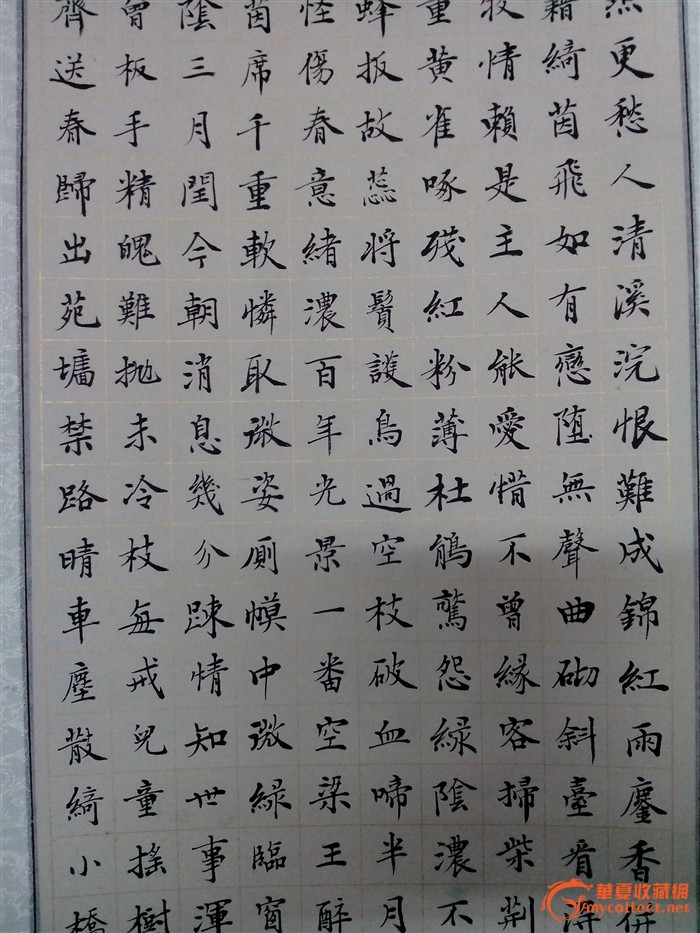 然更愁人清溪浣恨難成錦紅雨鏖香併
藉綺茵飛如有戀墮無聲曲砌斜臺看
情賴是主人能愛惜不曾緣客掃柴荆
重黄雀啄殘紅粉薄杜鵑驚怨緑陰濃不
蜂扳故蕊將鬚護鳥過空枝破血啼半月
怪傷春意緒濃百年光景一番空梁王醉
茵席千重軟憐取微姿厠幙中微緑臨窗
陰三月閏今朝消息幾分踈情知世事渾
曾板手精魄難抛未冷枝每戒兒童摇樹
齊送春歸出苑墻禁路晴車塵散綺小橋
華夏收藏網
mycollect.net